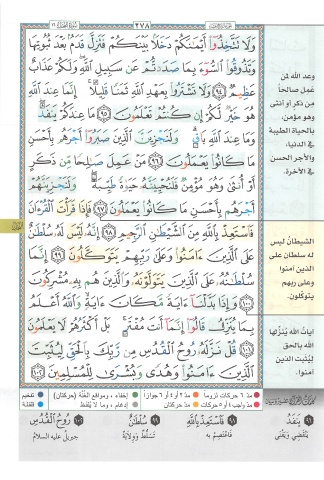 ٢٧٨
وَلَا تَتَّخِذُوٓا۟ أَيْمَٰنَكُمْ دَخَلًۢا بَيْنَكُمْ فَتَزِلَّ قَدَمٌۢ بَعْدَ ثُبُوتِهَا
وَتَذُوقُوا۟ ٱلسُّوٓءَ بِمَا صَدَدتُّمْ عَن سَبِيلِ ٱللَّهِ وَلَكُمْ عَذَابٌ
عَظِيمٌ ٩٤ وَلَا تَشْتَرُوا۟ بِعَهْدِ ٱللَّهِ ثَمَنًا قَلِيلًا إِنَّمَا عِندَ ٱللَّهِ
هُوَ خَيْرٌ لَّكُمْ إِن كُنتُمْ تَعْلَمُونَ ٩٥ مَا عِندَكُمْ يَنفَدُ
وَمَا عِندَ ٱللَّهِ بَاقٍ وَلَنَجْزِيَنَّ ٱلَّذِينَ صَبَرُوٓا۟ أَجْرَهُم بِأَحْسَنِ
مَا كَانُوا۟ يَعْمَلُونَ ٩٦ مَنْ عَمِلَ صَٰلِحًا مِّن ذَكَرٍ
أَوْ أُنثَىٰ وَهُوَ مُؤْمِنٌ فَلَنُحْيِيَنَّهُۥ حَيَوٰةً طَيِّبَةً وَلَنَجْزِيَنَّهُمْ
أَجْرَهُم بِأَحْسَنِ مَا كَانُوا۟ يَعْمَلُونَ ٩٧ فَإِذَا قَرَأْتَ ٱلْقُرْءَانَ
فَٱسْتَعِذْ بِٱللَّهِ مِنَ ٱلشَّيْطَٰنِ ٱلرَّجِيمِ ٩٨ إِنَّهُۥ لَيْسَ لَهُۥ سُلْطَٰنٌ
عَلَى ٱلَّذِينَ ءَامَنُوا۟ وَعَلَىٰ رَبِّهِمْ يَتَوَكَّلُونَ ٩٩ إِنَّمَا
سُلْطَٰنُهُۥ عَلَى ٱلَّذِينَ يَتَوَلَّوْنَهُۥ وَٱلَّذِينَ هُم بِهِۦ مُشْرِكُونَ
١٠٠ وَإِذَا بَدَّلْنَآ ءَايَةً مَّكَانَ ءَايَةٍ وَٱللَّهُ أَعْلَمُ
بِمَا يُنَزِّلُ قَالُوٓا۟ إِنَّمَآ أَنتَ مُفْتَرٍۭ بَلْ أَكْثَرُهُمْ لَا يَعْلَمُونَ
١٠١ قُلْ نَزَّلَهُۥ رُوحُ ٱلْقُدُسِ مِن رَّبِّكَ بِٱلْحَقِّ لِيُثَبِّتَ
ٱلَّذِينَ ءَامَنُوا۟ وَهُدًى وَبُشْرَىٰ لِلْمُسْلِمِينَ ١٠٢
وعد الله لمن
عمل صالحاً
من ذكر أو أنثى
وهو مؤمن،
بالحياة الطيبة
في الدنيا،
والأجر الحسن
في الآخرة.
الشيطانُ ليس
له سلطان على
الذين آمنوا
وعلى ربهم
يتوكّلون.
آياتُ الله يُنزّلها
الله بالحق
ليُثبت الذين
آمنوا.
مدّ ٦ حركات لزوماً مدّ ٢ أو ٤ أو ٦ جوازاً إخفاء، ومواقع الغُنَّة (حركتان) تفخيم
مدّ واجب ٤ أو ٥ حركات مدّ حركتان إدغام، وما لا يُلفَظ قلقلة
٩٦ يَنفَدُ ٩٨ فَاسْتَعِذْ بِاللَّهِ ٩٩ سُلْطَانٌ ١٠٢ رُوحُ الْقُدُسِ
يَنْقَضِي وَيَفْنَى فَاعْتَصِمْ به تَسَلُّطٌ وَوِلَايَةٌ جبريل عليه السلام